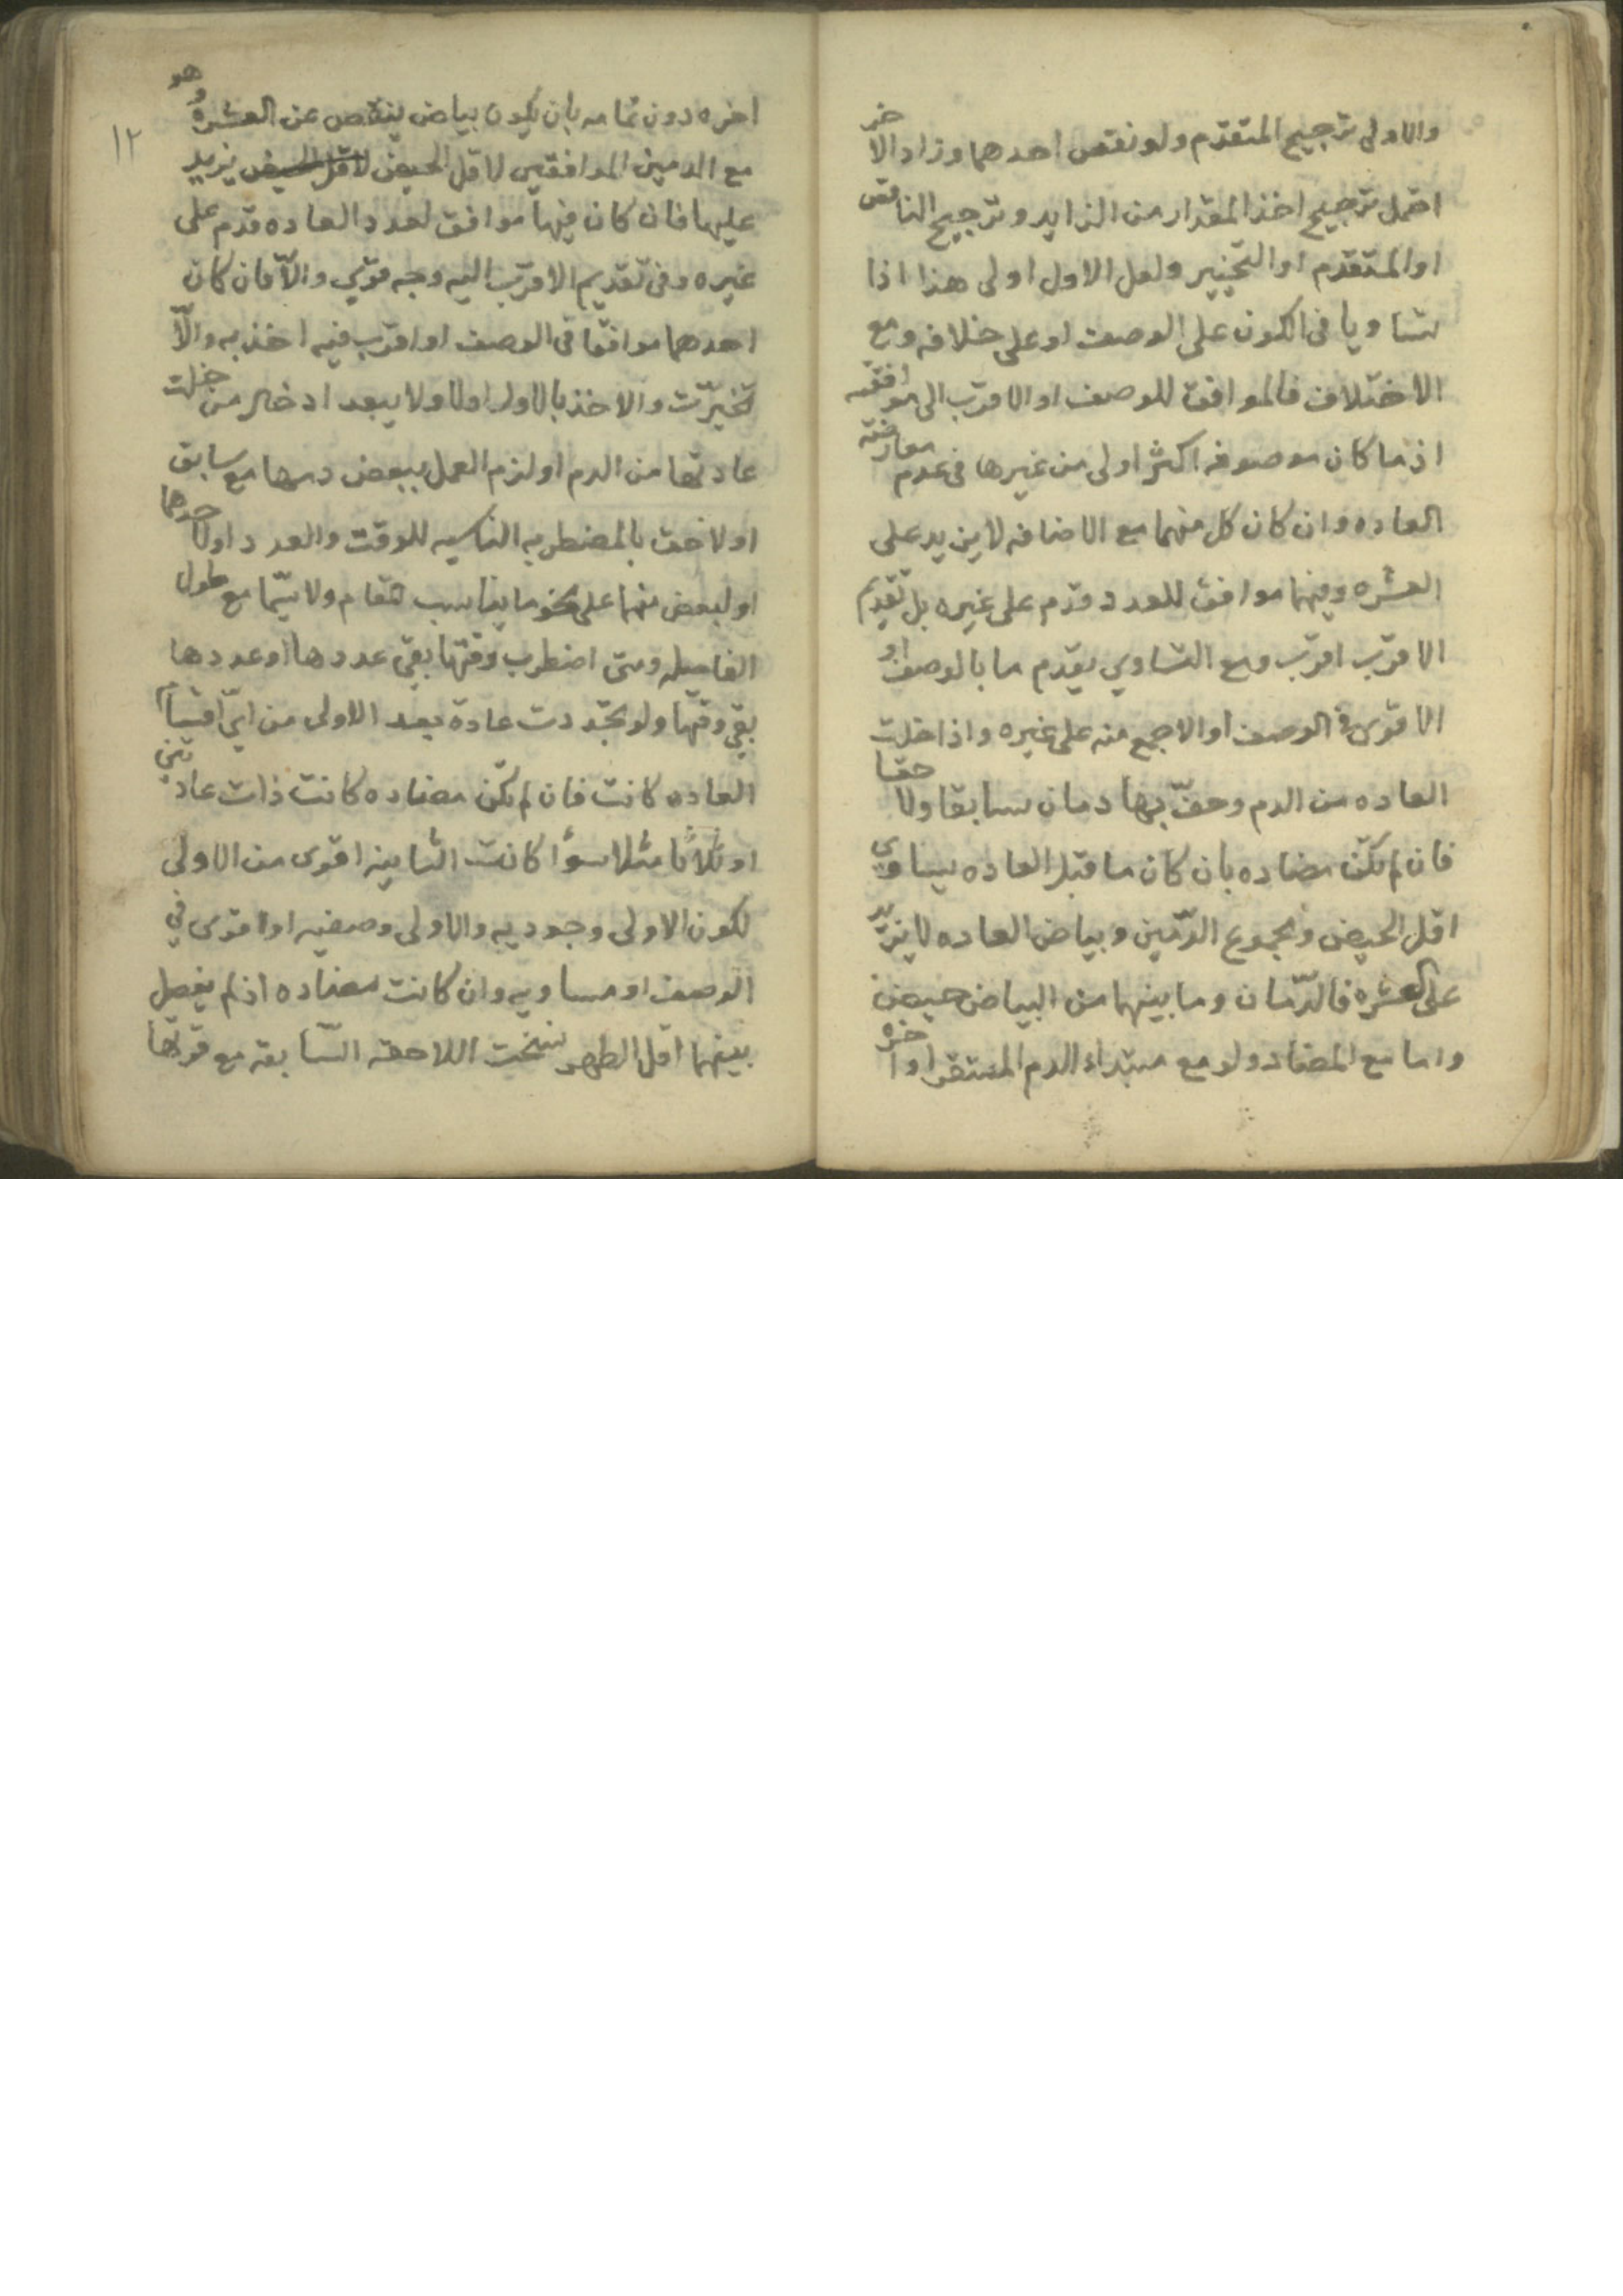 والاولى ترجيح المتقدم ولو نقص احدهما وزاد الاخر
احتمل ترجيح اخذ المقدار من الزايد وترجيح الناقص
او المتقدم او التخيير ولعل الاول اولى هذا اذا
تساويا في الكون على الوصف او على خلافه ومع
الاختلاف فالموافق للوصف او الاقرب الى موافقته
اذ ما كان موصوفه اكثر اولى من غيرها في عدم معارضته
العاده وان كان كل منهما مع الاضافه لا يزيد على
العشره وفيهما موافق للعدد قدم على غيره بل تقديم
الاقرب اقرب ومع التساوي يقدم ما بالوصف او
الاقوى في الوصف او الاجمع منه على غيره واذا خلت
العاده من الدم وحفّ بها دمان سابقا ولاحقا
فان لم تكن مضاده بان كان ما قبل العاده يساوي
اقل الحيض ومجموع الدّمين وبياض العاده لا يزيد
على العشره فالدّمان وما بينهما من البياض حيض
واما مع المضاد ولو مع مبتداء الدم المستقر او اخره
اخره دون تمامه بان يكون بياض ينقص عن العشره وهو
مع الدمين الموافقين لاقل الحيض لاقل الحيض يزيد
عليها فان كان فيهما موافق لعدد العاده قدم على
غيره وفي تقديم الاقرب اليه وجه قوّي والّا فان كان
احدهما موافقا في الوصف او اقرب فيه اخذ به والّا
تخيرّت والاخذ بالاول اولا ولا يبعد ادخال من خلت
عادتها من الدم او لزم العمل ببعض دمها مع سابق
او لاحق بالمضطربه الناسيه للوقت والعدد او لاحدهما
او لبعض منهما على نحو ما يناسب المقام ولا سيّما مع طول
الفاصله ومتى اضطرب وقتها بقي عددها او عددها
بقي وقتها ولو تجددت عادة بعد الاولى من ايّ اقسام
العاده كانت فان لم تكن مضاده كانت ذات عادتين
او ثلاثا مثلا سوأ كانت الثانيه اقوى من الاولى
لكون الاولى وجوديه والاولى وصفيه او اقوى في
الوصف او مساويه وان كانت مضاده اذ لم يفصل
بينهما اقل الطهر نسخت اللاحقه السّابقه مع قوتها
١٢